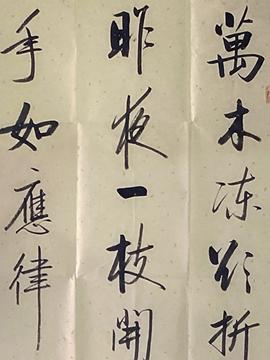 萬木凍欲折
昨夜一枝開
年如應律